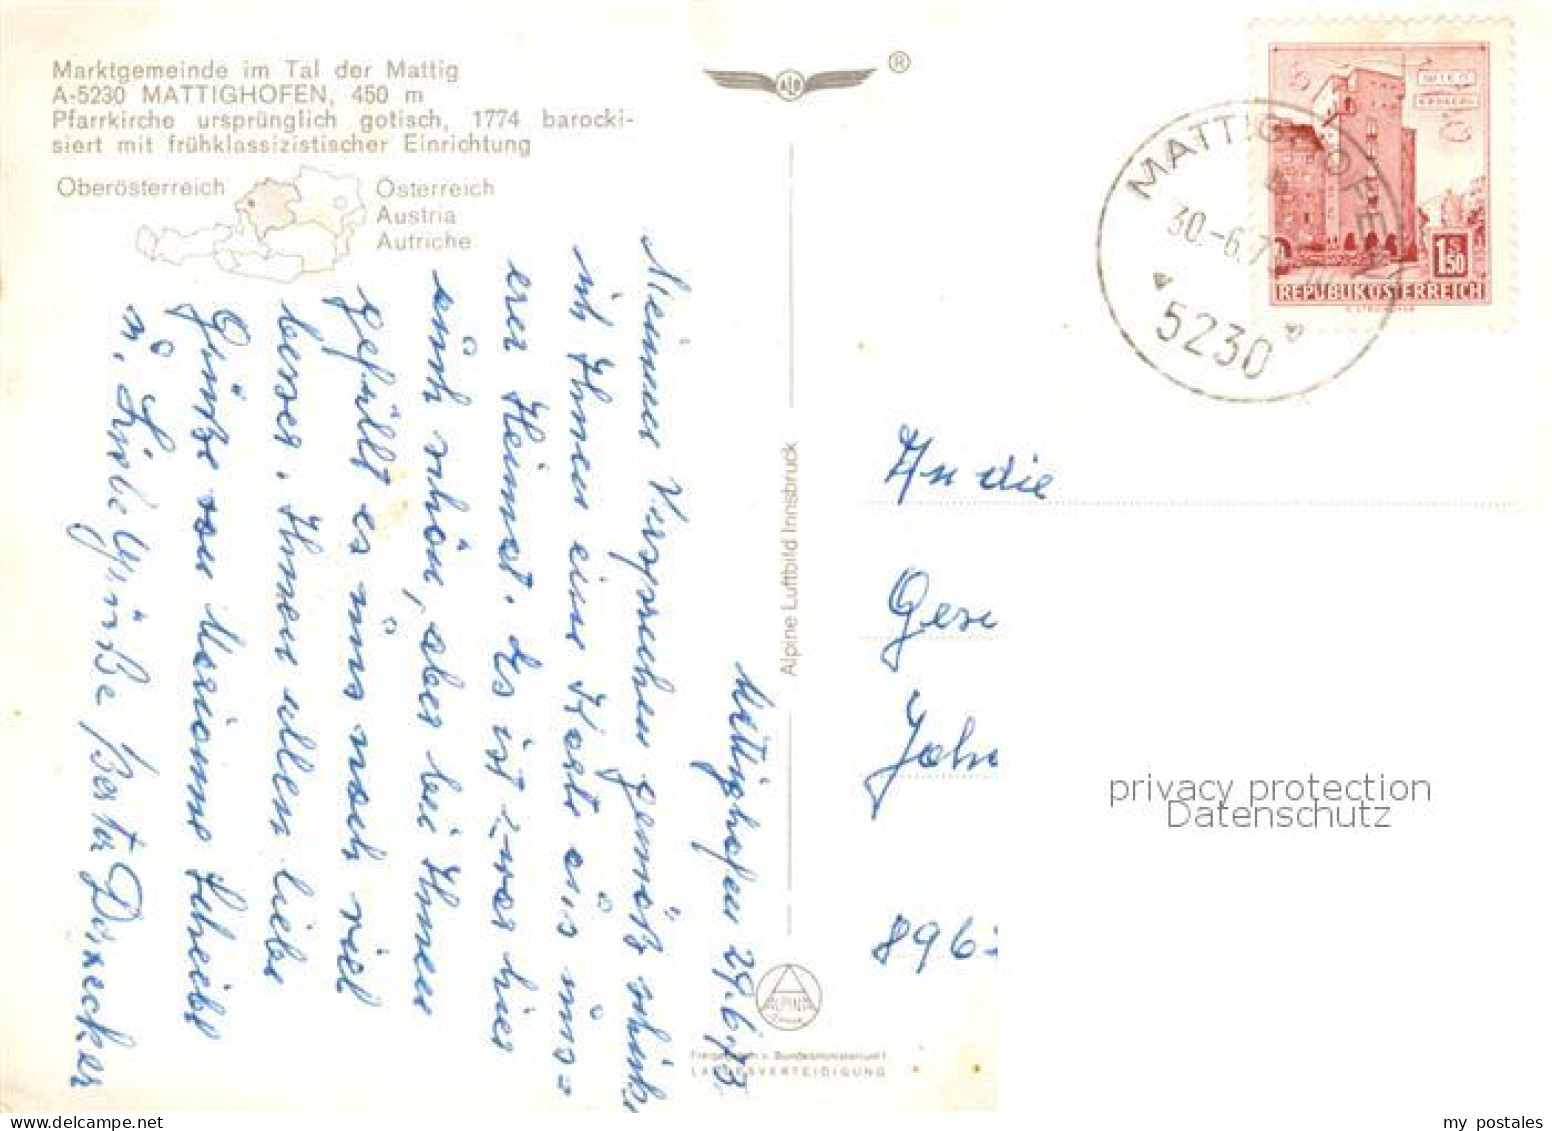 Marktgemeinde im Tal der Mattig
A-5230 MATTIGHOFEN, 450 m
Pfarrkirche ursprünglich gotisch, 1774 barocki-
siert mit frühklassizistischer Einrichtung
Oberösterreich
Österreich
Austria
Autriche
ALP
®
Mattighofen 29.6.73
Meinem Versprechen gemäß schicke
ich Ihnen eine Karte aus uns-
erer Heimat. Es ist zwar hier
auch schön, aber bei Ihnen
gefällt es uns noch viel
besser. Ihnen allen liebe
Grüße von Marianne Scheibl
u. Liebe Grüße Berta Dürnecker
Alpine Luftbild Innsbruck
ALPINA
Freigegeben v. Bundesministerium f.
LANDESVERTEIDIGUNG
MATTIGHOFEN
30.-6.7
5230
WIEN
ERDBERG
1.50
S
REPUBLIK ÖSTERREICH
An die
Gesc
Joha
896
privacy protection
Datenschutz
my postales